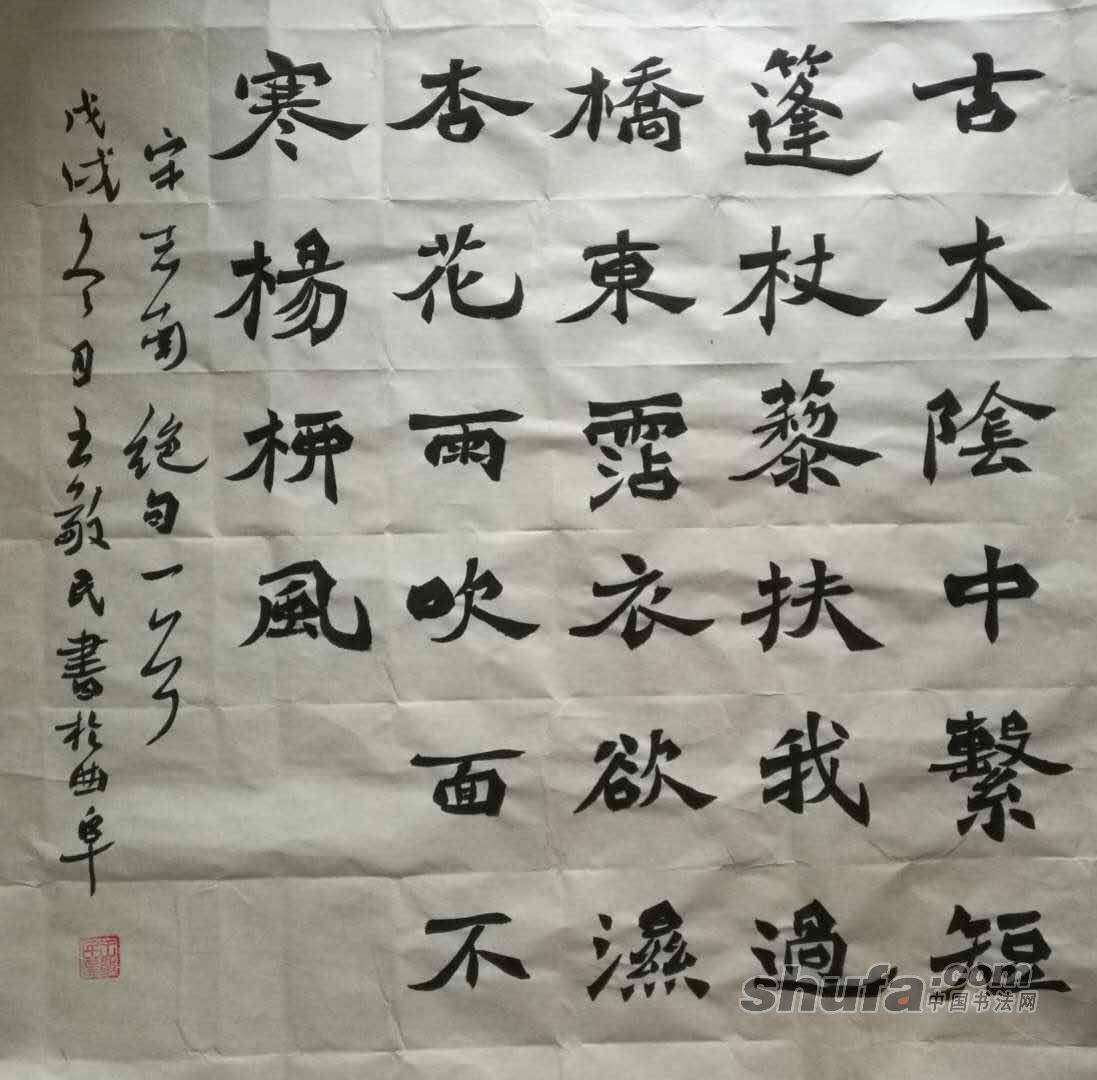 古木陰中繫短
篷杖黎扶我過
橋東霑衣欲濕
杏花雨吹面不
寒楊柳風
宋志南絕句一首
戊戌冬月王敬民書於曲阜
shufa.com
中国书法网